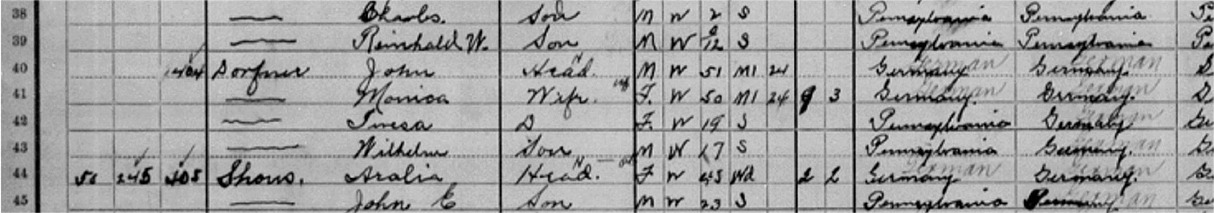 38 — Charls. Son M W 2 S Pennsylvania Pennsylvania Pe
39 — Reinhold W. Son M W 9/12 S Pennsylvania Pennsylvania Pe
40 404 Dorfner John Head. M W 51 M1 24 Germany Germany.
41 — Monica Wife. F. W 50 M1 24 9 3 Germany. Germany.
42 — Teresa D F. W 19 S Pennsylvania Germany Ge
43 — Wilhelm Son M W 17 S Pennsylvania Germany. Ge
44 50 245 405 Shous. Head. F W 45 Wd 2 2 Germany Germany. Ge
45 — John E Son M W 23 S Pennsylvania Ge